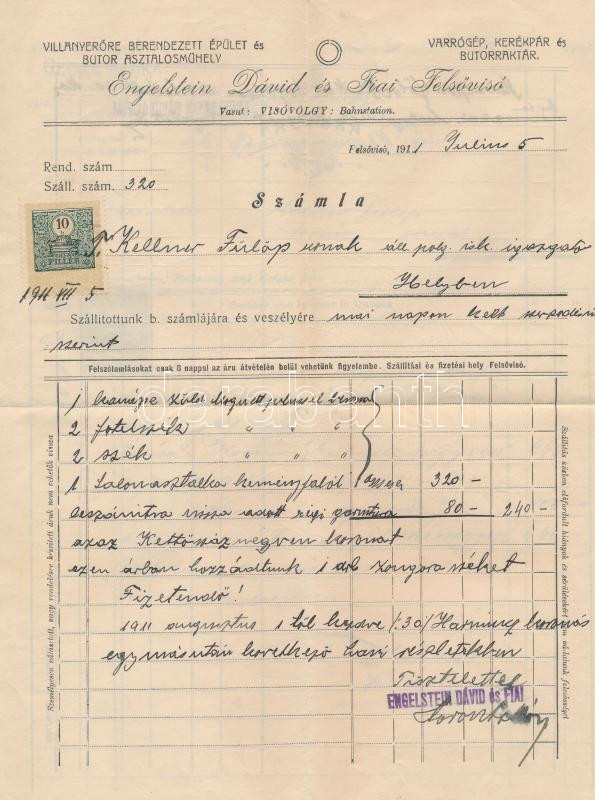 VILLANYERŐRE BERENDEZETT ÉPÜLET és
BUTOR ASZTALOSMŰHELY
VARRÓGÉP, KERÉKPÁR és
BUTORRAKTÁR.
Engelstein Dávid és Fiai Felsővisó
Vasut: VISÓVÖLGY: Bahnstation.
Felsővisó, 1911 Julius 5
Rend. szám
Száll. szám. 320
Számla
10
FILLÉR
T. Kellner Fülöp urnak áll. polg. isk. igazgató
Helyben
1911 VII 5
Szállitottunk b. számlájára és veszélyére mai napon kelt
szerint
Felszólamlásokat csak 8 nappal az áru átvételén belül vehetünk figyelembe. Szállitási és fizetési hely Felsővisó.
1 kanapé zöld
2 fotelszék " " "
2 szék " " "
1 Salonasztalka keményfából 320 –
leszámitva vissza adott régi garnitura 80 – 240 –
azaz Kettőszáz negyven koronát
ezen árban hozzáadtunk 1 drb zongora széket
Fizetendő!
1911 augusztus 1 től kezdve /:30/ Harmincz koronás
egymásután következő havi részletekben
Tisztelettel
ENGELSTEIN DÁVID és FIAI
Személyesen választott, vagy rendelésre készitett áruk nem vehetők vissza
Szállitás közben előfordult hiányok és sérülésekért nem vállalunk felelősséget
darabanth